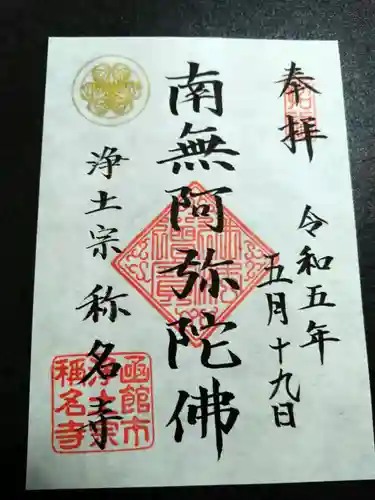 奉拝
令和五年
五月十九日
南無阿弥陀佛
浄土宗 称名寺
函館市
浄土宗
稱名寺